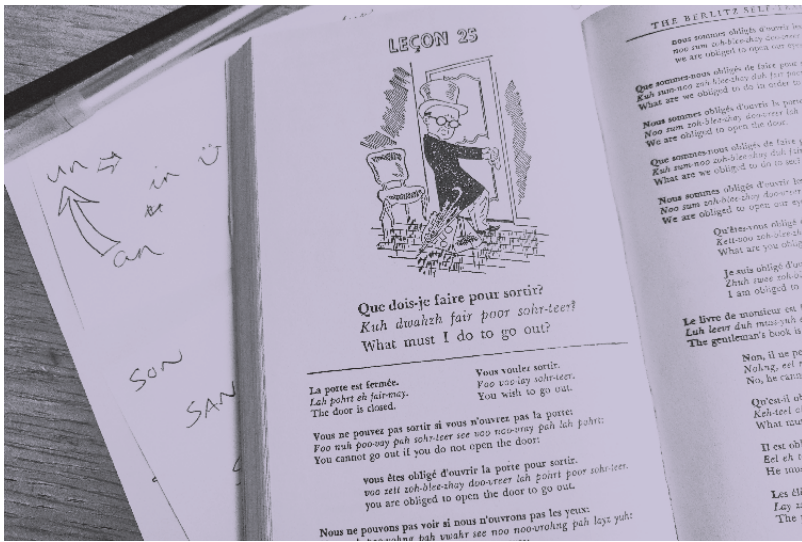 un
in
an
SON
SAN
LEÇON 25
Que dois-je faire pour sortir?
Kuh dwahzh fair poor sohr-teer?
What must I do to go out?
La porte est fermée.
Lah pohrt eh fair-may.
The door is closed.
Vous voulez sortir.
Voo voo-lay sohr-teer.
You wish to go out.
Vous ne pouvez pas sortir si vous n'ouvrez pas la porte:
Voo nuh poo-vay pah sohr-teer see voo noo-vray pah lah pohrt:
You cannot go out if you do not open the door:
vous êtes obligé d'ouvrir la porte pour sortir.
voo zett zoh-blee-zhay doo-vreer lah pohrt poor sohr-teer.
you are obliged to open the door to go out.
Nous ne pouvons pas voir si nous n'ouvrons pas les yeux:
pah vwahr see noo noo-vrohng pah layz yuh:
THE BERLITZ
nous sommes obligés d'ouvrir
noo sum zoh-blee-zhay doo-vreer
we are obliged to open our
Que sommes-nous obligés de faire pour
Kuh sum-noo zoh-blee-zhay duh fair
What are we obliged to do in order to
Nous sommes obligés d'ouvrir la
Noo sum zoh-blee-zhay doo-vreer lah
We are obliged to open the door.
Que sommes-nous obligés de faire
Kuh sum-noo zoh-blee-zhay duh fair
What are we obliged to do to
Nous sommes obligés d'ouvrir
Noo sum zoh-blee-zhay
We are obliged to open our
Qu'êtes-vous obligé
Kett-voo zoh-blee-zhay
What are you
Je suis obligé
Zhuh swee
I am obliged to
Le livre de monsieur est
Luh leevr duh
The gentleman's book is
Non, il ne
Nohng, eel
No, he
Qu'est-il
Keh-teel
What
Il est
Eel eh
He
Les
Lay
The